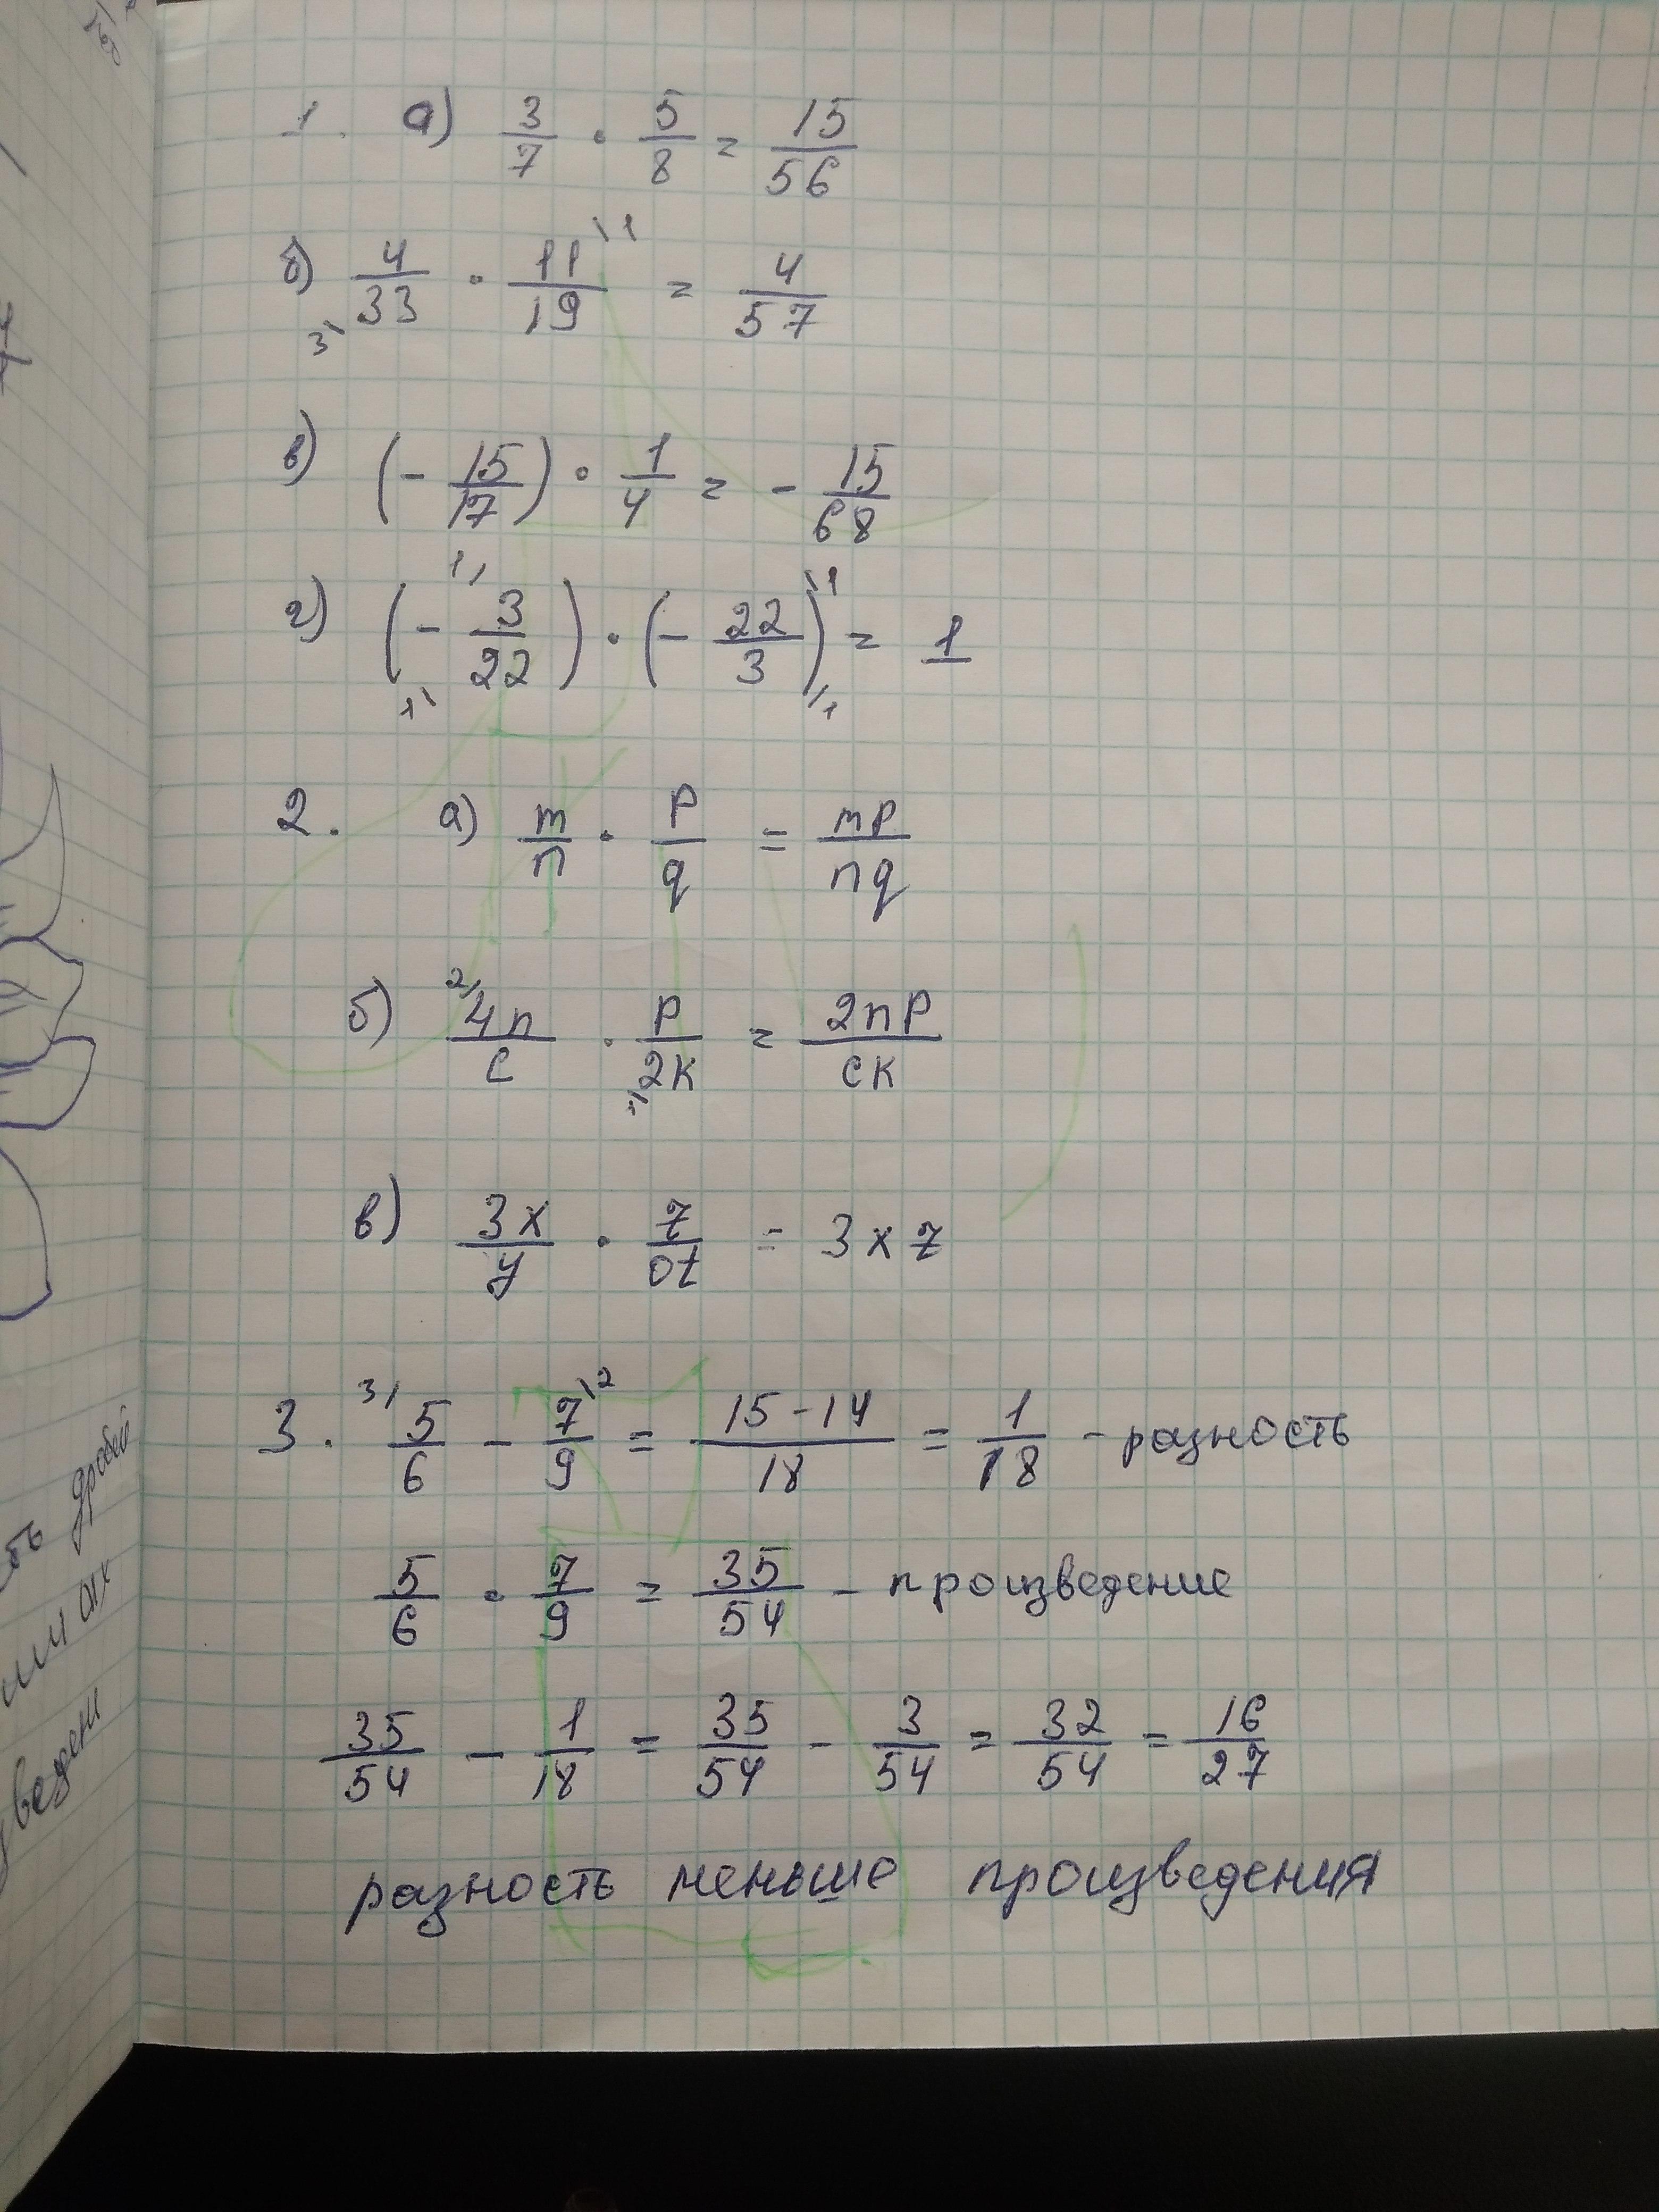 1. а) 3/7 · 5/8 = 15/56
б) 4/33 3\ · 11/19 \1 = 4/57
в) (- 15/17) · 1/4 = - 15/68
г) (- 1/ 3/22 1\) · (- 22/3) \1 /1 = 1
2. а) m/n · p/q = mp/nq
б) 2/ 4n/c · p/2k 1/ = 2np/ck
в) 3x/y · z/0t = 3xz
3. 3/ 5/6 - 7/9 \2 = 15-14/18 = 1/18 - разность
5/6 · 7/9 = 35/54 - произведение
35/54 - 1/18 = 35/54 - 3/54 = 32/54 = 16/27
разность меньше произведения
дробей